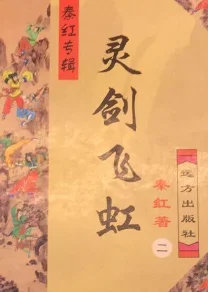 秦红专辑
灵剑飞虹
秦红著
二
远方出版社